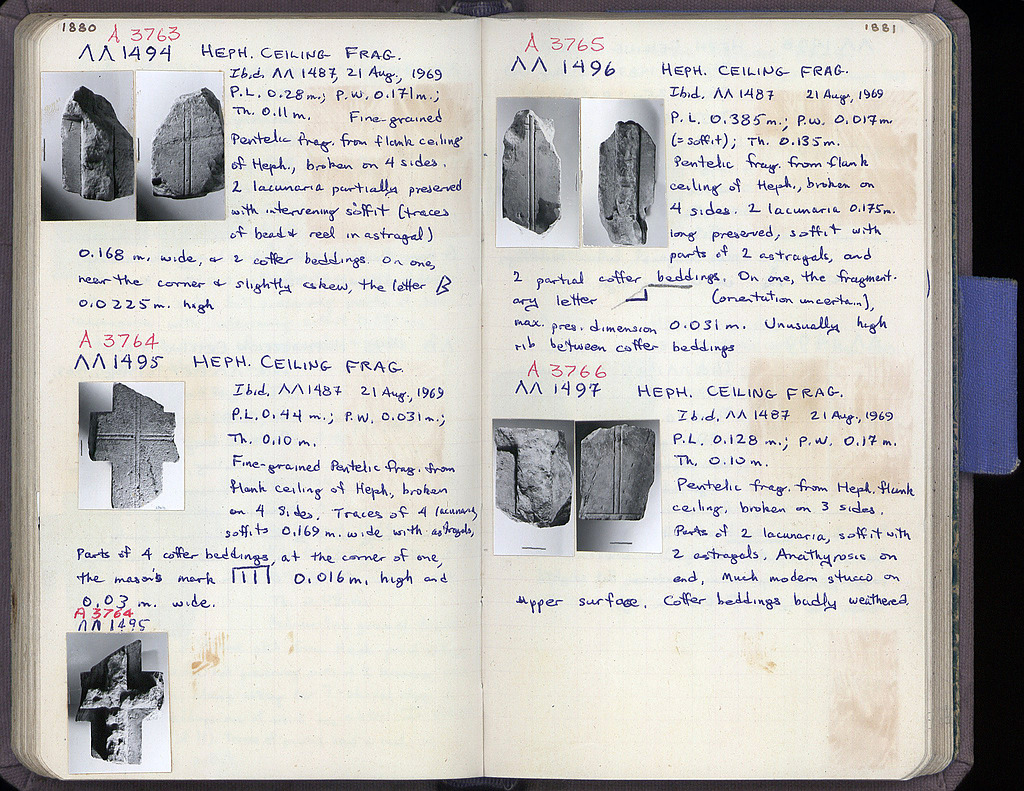 1880
A 3763
ΛΛ 1494 HEPH. CEILING FRAG.
Ibid, ΛΛ 1487, 21 Aug., 1969
P.L. 0.28 m.; P.W. 0.171 m.;
Th. 0.11 m. Fine-grained
Pentelic frag. from flank ceiling
of Heph., broken on 4 sides.
2 lacunaria partially preserved
with intervening soffit (traces
of bead & reel in astragal)
0.168 m. wide, & 2 coffer beddings. On one,
near the corner & slightly askew, the letter B
0.0225 m. high
A 3764
ΛΛ 1495 HEPH. CEILING FRAG.
Ibid, ΛΛ 1487 21 Aug, 1969
P.L. 0.44 m.; P.W. 0.031 m.;
Th. 0.10 m.
Fine-grained Pentelic frag. from
flank ceiling of Heph., broken
on 4 sides. Traces of 4 lacunaria,
soffits 0.169 m. wide with astragals,
Parts of 4 coffer beddings, at the corner of one,
the mason's mark 0.016 m. high and
0.03 m. wide.
A 3764
ΛΛ 1495
1881
A 3765
ΛΛ 1496 HEPH. CEILING FRAG.
Ibid, ΛΛ 1487 21 Aug, 1969
P.L. 0.385 m.; P.W. 0.017 m
(= soffit); Th. 0.135 m.
Pentelic frag. from flank
ceiling of Heph., broken on
4 sides. 2 lacunaria 0.175 m.
long preserved, soffit with
parts of 2 astragals, and
2 partial coffer beddings. On one, the fragment-
ary letter (orientation uncertain),
max. pres. dimension 0.031 m. Unusually high
rib between coffer beddings
A 3766
ΛΛ 1497 HEPH. CEILING FRAG.
Ibid, ΛΛ 1487 21 Aug, 1969
P.L. 0.128 m.; P.W. 0.17 m.
Th. 0.10 m.
Pentelic frag. from Heph. flank
ceiling, broken on 3 sides.
Parts of 2 lacunaria, soffit with
2 astragals. Anathyrosis on
end. Much modern stucco on
upper surface. Coffer beddings badly weathered.